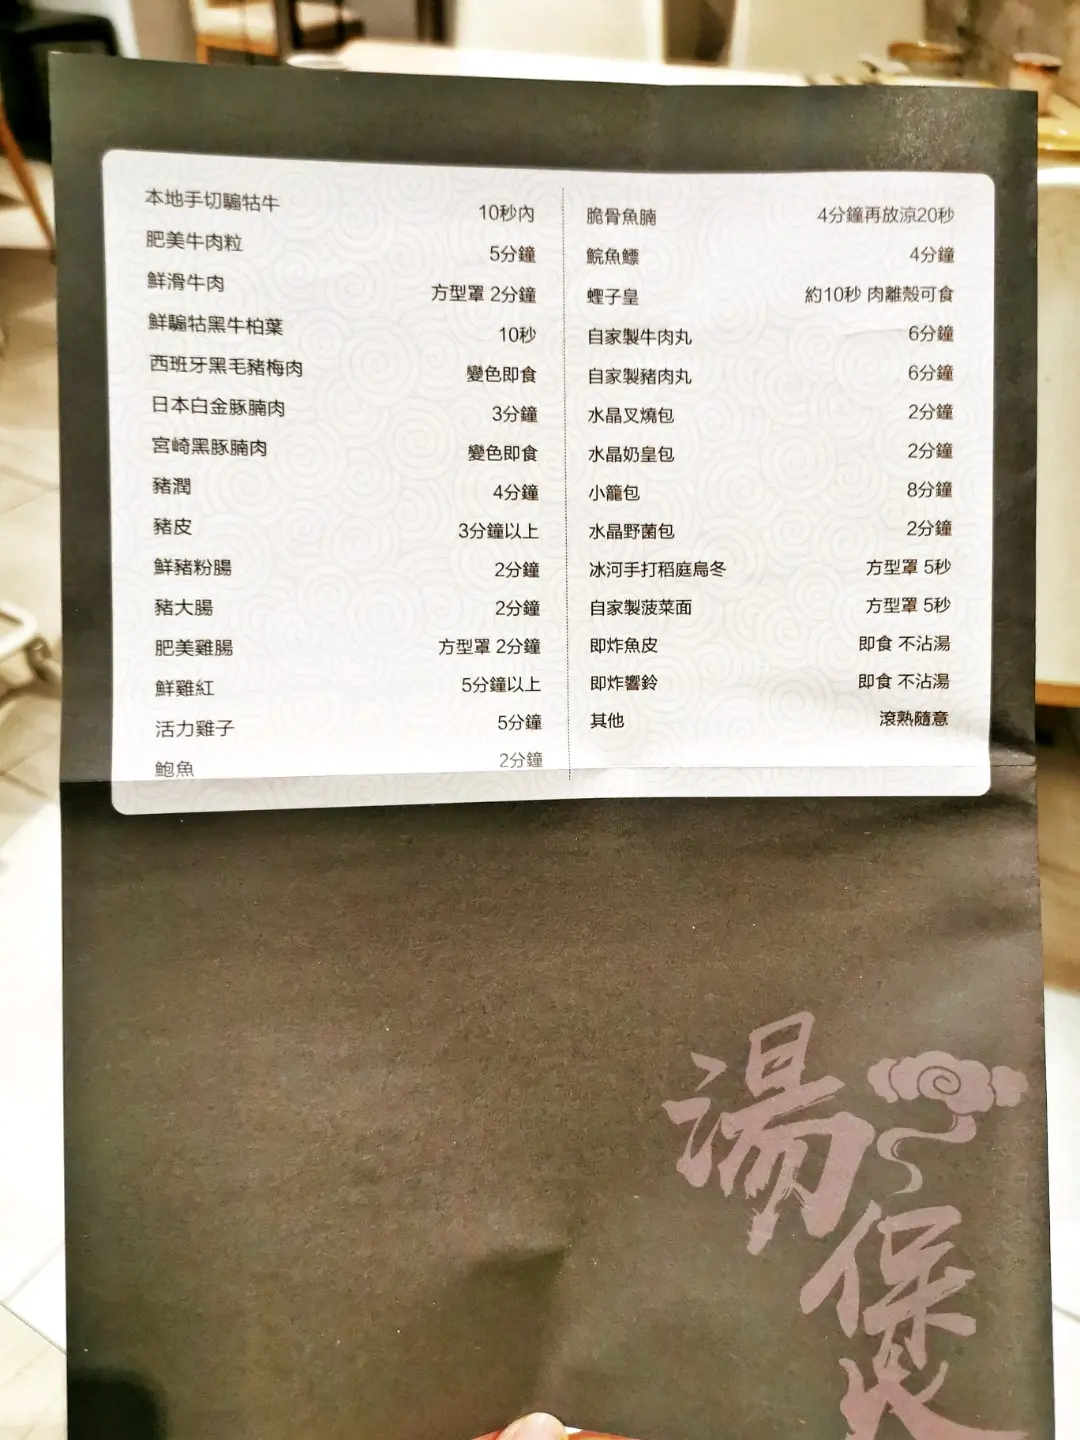 本地手切騸牯牛 10秒內
肥美牛肉粒 5分鐘
鮮滑牛肉 方型罩 2分鐘
鮮騸牯黑牛柏葉 10秒
西班牙黑毛豬梅肉 變色即食
日本白金豚腩肉 3分鐘
宮崎黑豚腩肉 變色即食
豬潤 4分鐘
豬皮 3分鐘以上
鮮豬粉腸 2分鐘
豬大腸 2分鐘
肥美雞腸 方型罩 2分鐘
鮮雞紅 5分鐘以上
活力雞子 5分鐘
鮑魚 2分鐘
脆骨魚腩 4分鐘再放涼20秒
鯇魚鰾 4分鐘
蟶子皇 約10秒 肉離殼可食
自家製牛肉丸 6分鐘
自家製豬肉丸 6分鐘
水晶叉燒包 2分鐘
水晶奶皇包 2分鐘
小籠包 8分鐘
水晶野菌包 2分鐘
冰河手打稻庭烏冬 方型罩 5秒
自家製菠菜面 方型罩 5秒
即炸魚皮 即食 不沾湯
即炸響鈴 即食 不沾湯
其他 滾熟隨意
湯煲